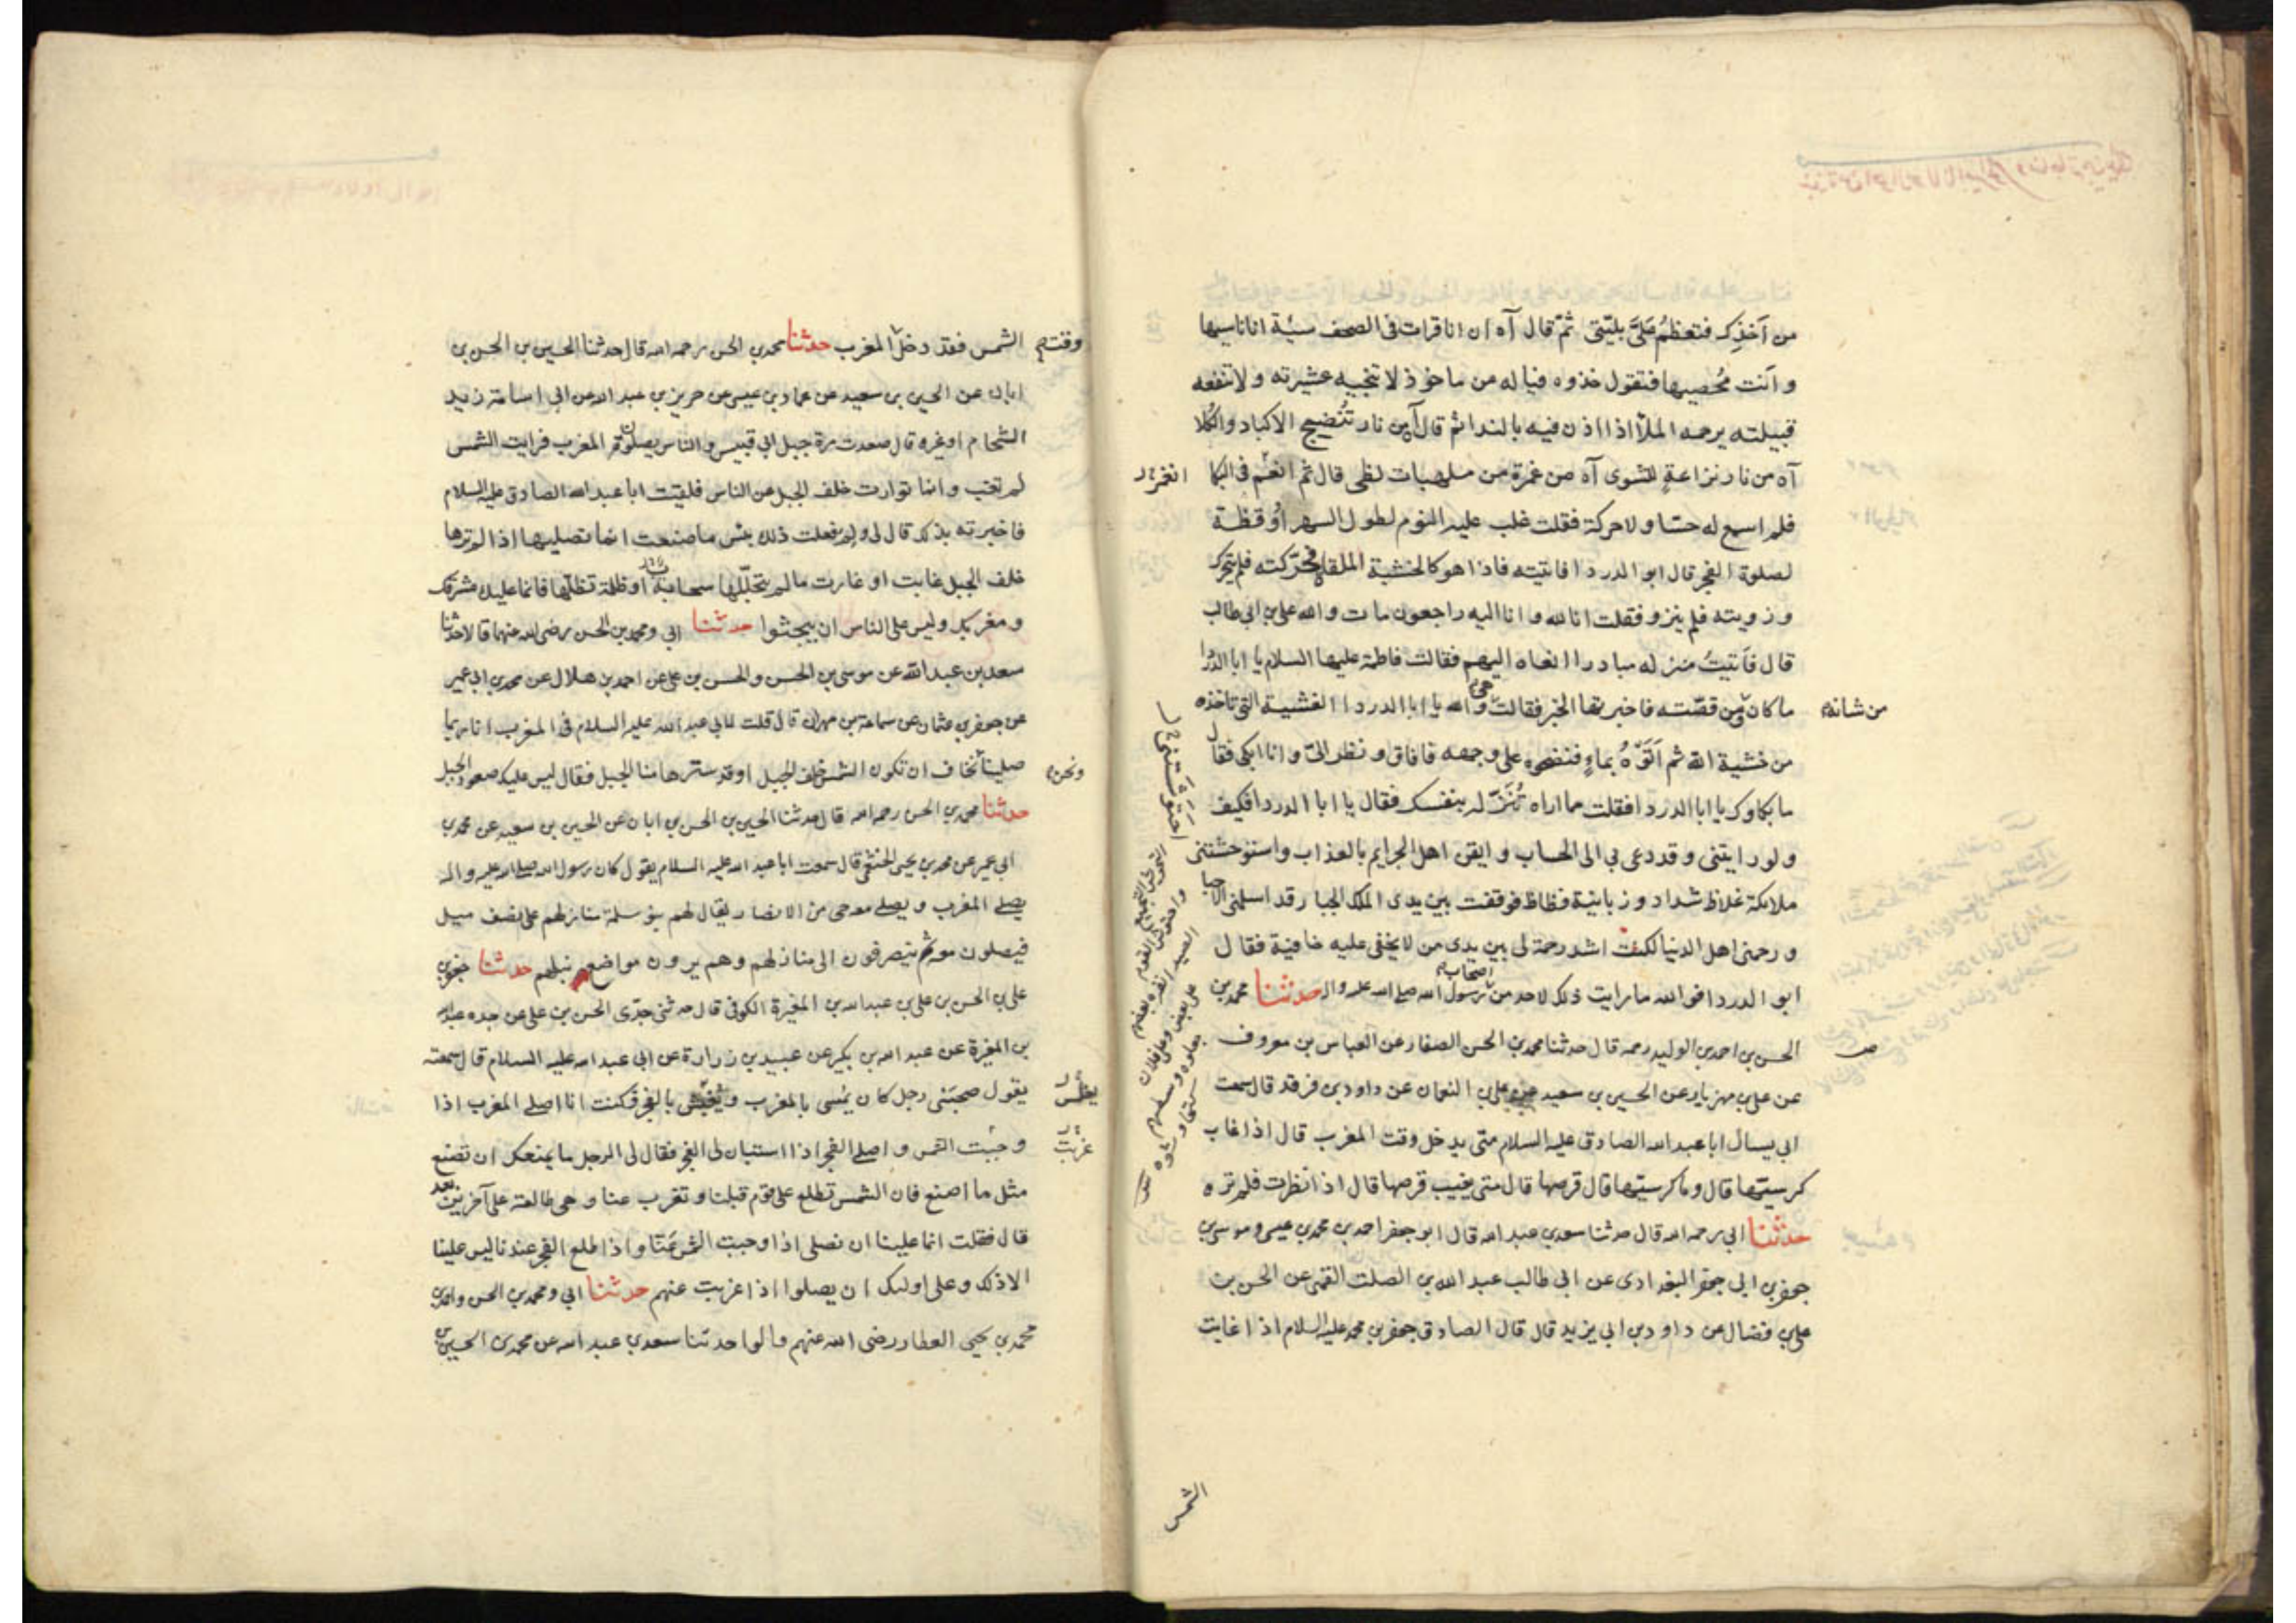 من آخذك فتعظم علىّ بليّتى ثمّ قال آه ان انا قرات فى الصحف سيئة انا ناسيها
و انت مُحصيها فتقول خذوه فيا له من ماخوذ لا تنجيه عشيرته و لا تنفعه
قبيلته يرحمه الملأ اذا اذن فيه بالندا ثم قال آه من نار تُنضِج الاكباد والكُلا
آه من نار نزاعةٍ للشوى آه من غمرة من ملهبات لظى قال ثم انعم فى البكا
فلم اسمع له حسّا و لا حركة فقلت غلب عليه النوم لطول السهر اُوقظه
لصلوة الفجر قال ابو الدردا فاتيته فاذا هو كالخشبة الملقاة فحرّكته فلم يتحرك
و زويته فلم ينزو فقلت انا لله و انا اليه راجعون مات والله على بن ابى طالب
قال فاتيتُ منزله مبادرا انعاه اليهم فقالت فاطمة عليها السلام يا ابا الدردا
ما كان من قصّته فاخبرتها الخبر فقالت هى والله يا ابا الدردا الغشية التى تاخذه
من شانه
من خشية الله ثم اَتَوْهُ بماءٍ فنضحوه على وجهه فافاق و نظر الىّ و انا ابكى فقال
ما بكاوك يا ابا الدردا فقلت مما اراه تُنزّله بنفسك فقال يا ابا الدردا فكيف
و لو رايتنى و قد دعى بى الى الحساب و ايقن اهل الجرايم بالعذاب و استوحشتنى
ملائكة غلاظ شداد و زبانية فظاظ فوقفت بين يدى الملك الجبار قد اسلمنى الاحبا
و رحمنى اهل الدنيا لكنت اشد رحمة لى بين يدى من لا يخفى عليه خافية فقال
ابو الدردا فوالله ما رايت ذلك لاحد من اصحاب رسول الله صلى الله عليه واله حدثنا محمد بن
الحسن بن احمد بن الوليد رحمه قال حدثنا محمد بن الحسن الصفار عن العباس بن معروف
عن على بن مهزيار عن الحسين بن سعيد عن على بن النعمان عن داود بن فرقد قال سمعت
ابى يسال ابا عبد الله الصادق عليه السلام متى يدخل وقت المغرب قال اذا غاب
كرسيّها قال و ما كرسيّها قال قرصها قال متى يغيب قرصها قال اذا نظرت فلم تره
حدثنا ابى رحمه الله قال حدثنا سعد بن عبد الله قال ابو جعفر احمد بن محمد بن عيسى و موسى بن
جعفر بن ابى جعفر البغدادى عن ابى طالب عبد الله بن الصلت القمى عن الحسن بن
على بن فضال عن داود بن ابى يزيد قال قال الصادق جعفر بن محمد عليه السلام اذا غابت
الشمس
الشمس فقد دخل المغرب حدثنا محمد بن الحسن رحمه الله قال حدثنا الحسين بن الحسن بن
وقت
ابان عن الحسين بن سعيد عن حماد بن عيسى عن حريز بن عبد الله عن ابى اسامة زيد
الشحام او غيره قال صعدت مرة جبل ابى قبيس و الناس يصلون المغرب فرايت الشمس
لم تغب و انما توارت خلف الجبل عن الناس فلقيت ابا عبد الله الصادق عليه السلام
فاخبرته بذلك قال لى و لم فعلت ذلك بئس ما صنعت انما تصليها اذا لم ترها
خلف الجبل غابت او غارت ما لم يتجلّلها سحابة او ظلمة تظلّها فانما عليك مشرقك
و مغربك و ليس على الناس ان يبحثوا حدثنا ابى و محمد بن الحسن رضى الله عنهما قالا حدثنا
سعد بن عبد الله عن موسى بن الحسن و الحسن بن على عن احمد بن هلال عن محمد بن ابى عمير
عن جعفر بن عثمان عن سماعة بن مهران قال قلت لابى عبد الله عليه السلام فى المغرب انا ربما
صلينا نخاف ان تكون الشمس خلف الجبل او قد سترها منا الجبل فقال ليس عليك صعود الجبل
ونحن
حدثنا محمد بن الحسن رحمه الله قال حدثنا الحسين بن الحسن بن ابان عن الحسين بن سعيد عن محمد بن
ابى عمير عن محمد بن يحيى الخثعمى قال سمعت ابا عبد الله عليه السلام يقول كان رسول الله صلى الله عليه واله
يصلى المغرب و يصلى معه حى من الانصار يقال لهم بنو سلمة منازلهم على نصف ميل
فيصلون معه ثم ينصرفون الى منازلهم و هم يرون مواضع نبلهم حدثنا جعفر بن
على بن الحسن بن على بن عبد الله بن المغيرة الكوفى قال حدثنى جدّى الحسن بن على عن جده عبد الله
بن المغيرة عن عبد الله بن بكير عن عبيد بن زرارة عن ابى عبد الله عليه السلام قال سمعته
يقول صحبنى رجل كان يمسى بالمغرب و يغبش بالفجر فكنت انا اصلى المغرب اذا
يغلس
وجبت الشمس و اصلى الفجر اذا استبان لى الفجر فقال لى الرجل ما يمنعك ان تصنع
غربت
مثل ما اصنع فان الشمس تطلع على قوم قبلنا و تغرب عنا و هى طالعة على آخرين بعد
قال فقلت انما علينا ان نصلى اذا وجبت الشمس عنّا و اذا طلع الفجر عندنا ليس علينا
الا ذلك و على اولئك ان يصلوا اذا غربت عنهم حدثنا ابى و محمد بن الحسن و احمد بن
محمد بن يحيى العطار رضى الله عنهم قالوا حدثنا سعد بن عبد الله عن محمد بن الحسين